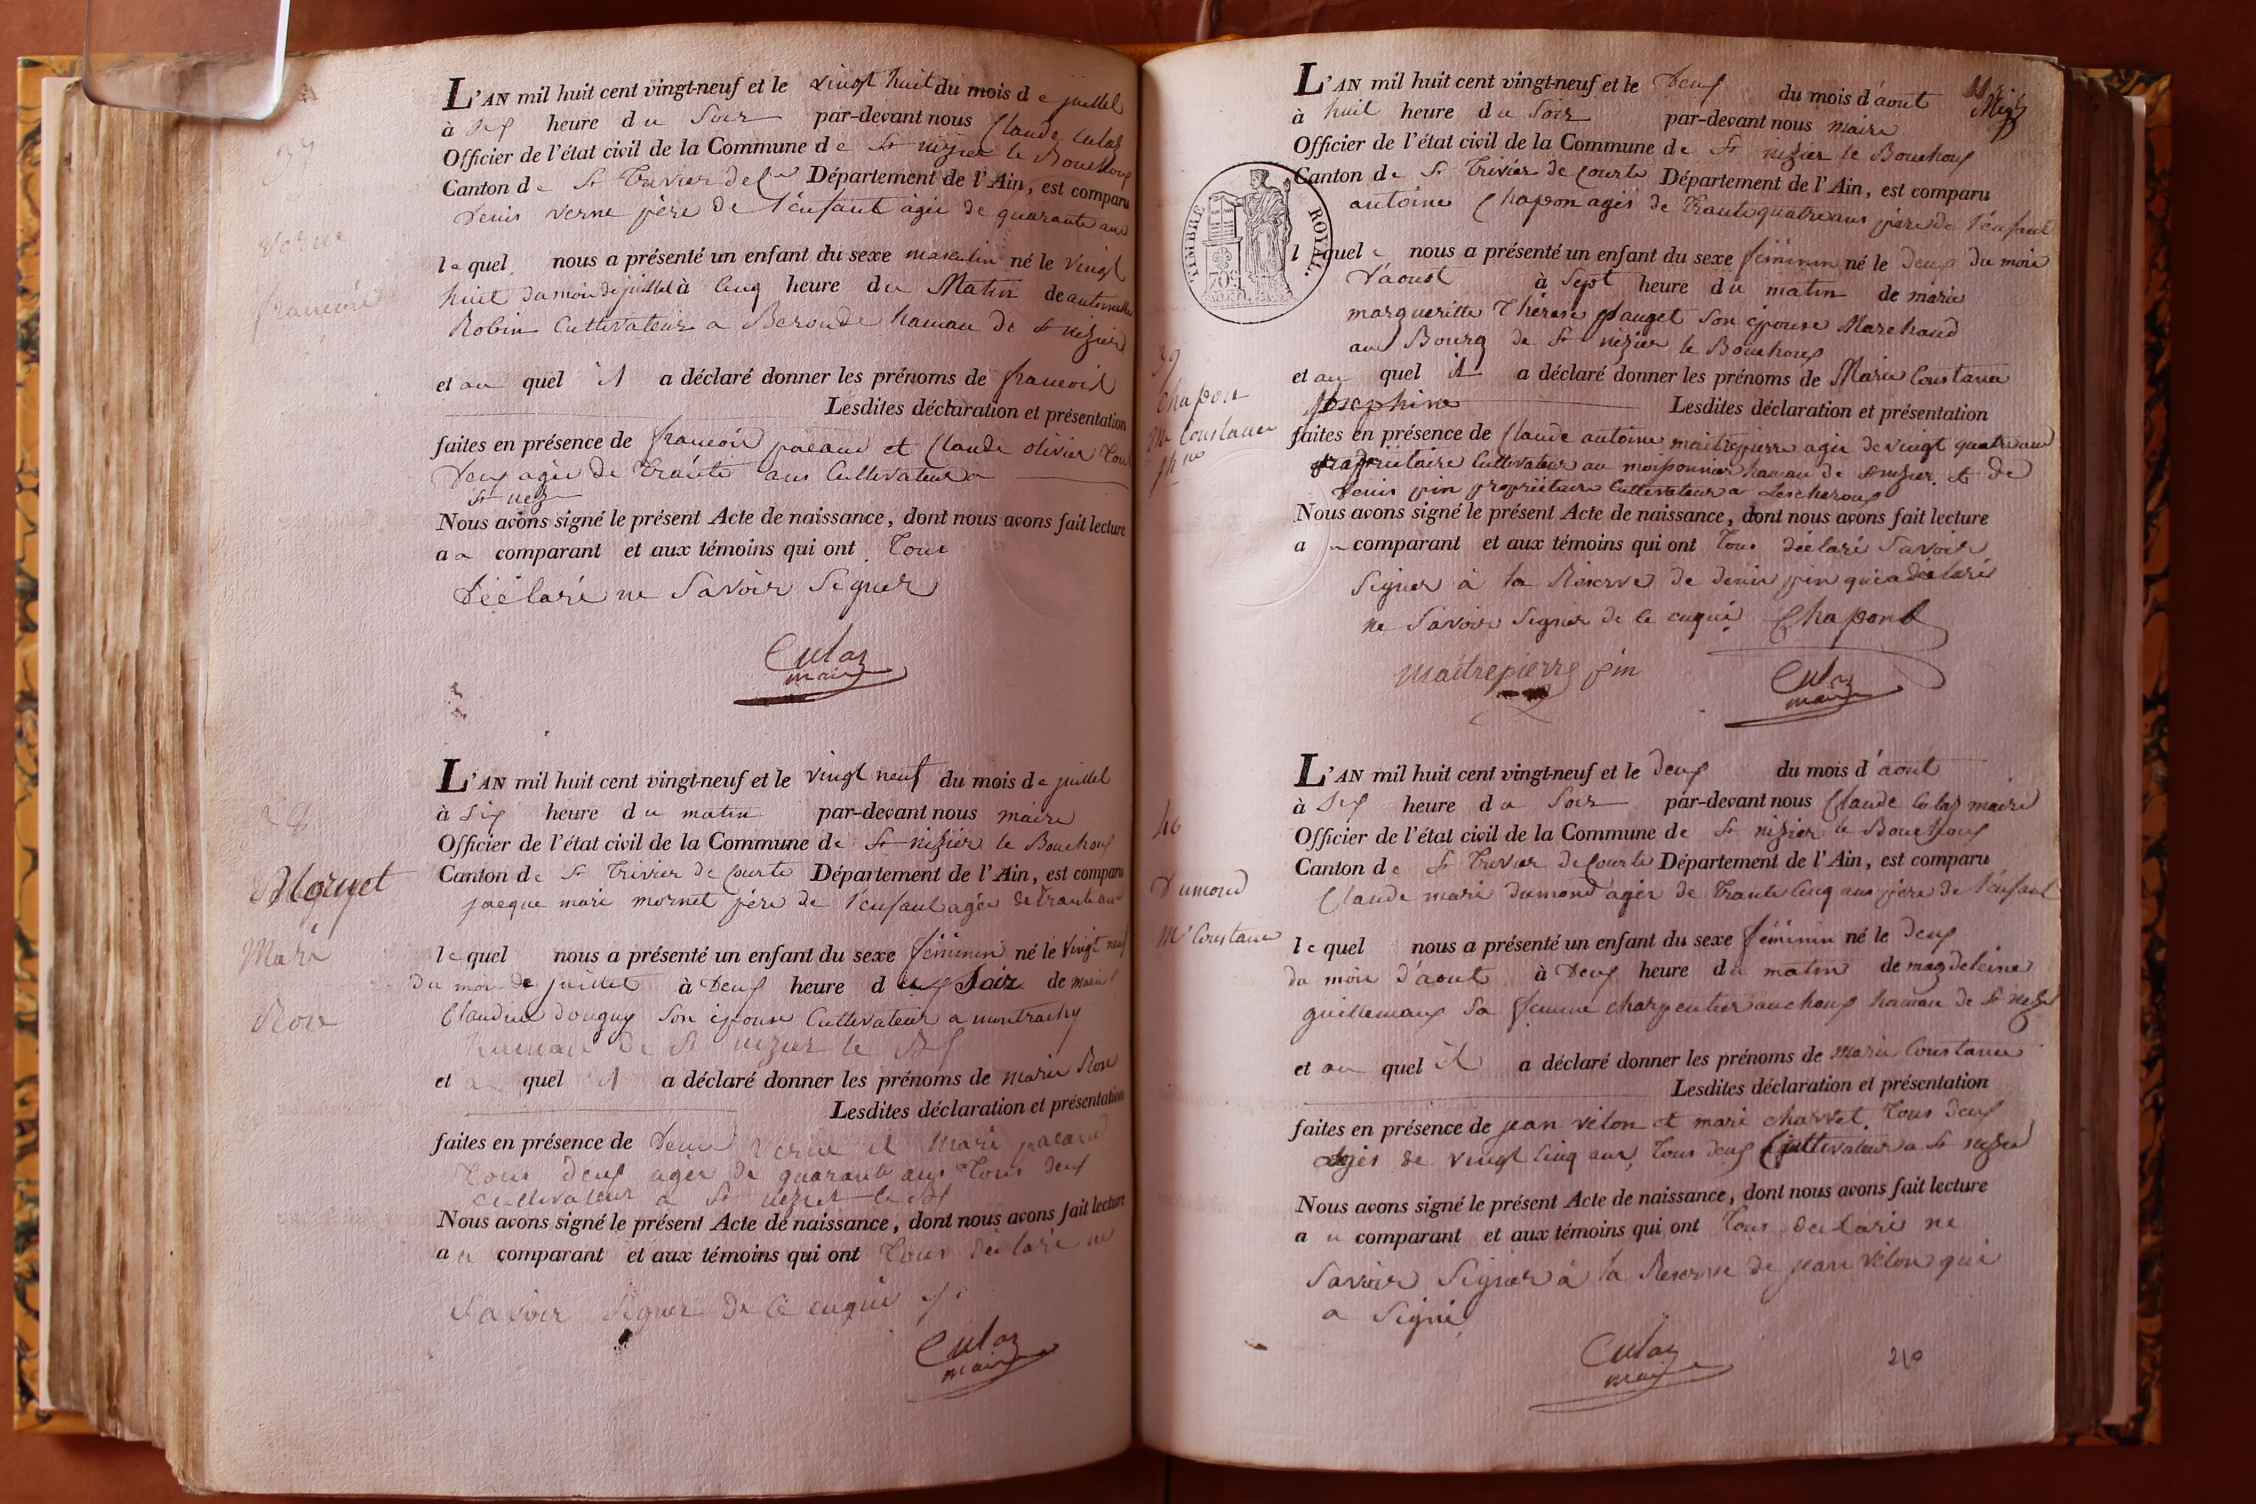 37
Verne
francois
L'AN mil huit cent vingt-neuf et le vingt huit du mois de juillet
à Six heure du Soir par-devant nous Claude Culaz
Officier de l'état civil de la Commune de St nizier le Bouchoux
Canton de St Trivier de C Département de l'Ain, est comparu
Denis verne père de l'enfant agée de quarante ans
lequel nous a présenté un enfant du sexe masculin né le vingt
huit du mois de juillet à cinq heure du Matin de antoinette
Robin Cultivateur a Beronde hamau de St nizier
et au quel il a déclaré donner les prénoms de francois
Lesdites déclaration et présentation
faites en présence de francois pacaud et Claude olivier Tous
Deux agée de Trante ans Cultivateur a
St niz
Nous avons signé le présent Acte de naissance, dont nous avons fait lecture
au comparant et aux témoins qui ont Tous
Déclaré ne Savoir Signer
Culaz
maire
38
Mornet
Mari
Rose
L'AN mil huit cent vingt-neuf et le vingt neuf du mois de juillet
à Six heure du matin par-devant nous maire
Officier de l'état civil de la Commune de St nizier le Bouchoux
Canton de St Trivier de Courte Département de l'Ain, est comparu
jacque mari mornet père de l'enfant agée de Trante ans
lequel nous a présenté un enfant du sexe féminin né le Vingt neuf
du mois de juillet à Deux heure du Soir de marie
Claudine douguy Son épouse Cultivateur a montrachy
hamau de St nizier le Bx
et au quel il a déclaré donner les prénoms de marie Rose
Lesdites déclaration et présentation
faites en présence de Denis verne et Mari pacaud
Tous deux agée de quarante ans Tous deux
cultivateur a St nizier le Bx
Nous avons signé le présent Acte de naissance, dont nous avons fait lecture
au comparant et aux témoins qui ont Tous déclaré ne
Savoir Signer de ce enquis
Culaz
maire
TIMBRE ROYAL
39
Chapon
Mie Constance
phine
L'AN mil huit cent vingt-neuf et le Deux du mois d'aout
à huit heure du Soir par-devant nous maire
Officier de l'état civil de la Commune de St nizier le Bouchoux
Canton de St Trivier de Courte Département de l'Ain, est comparu
antoine Chapon agés de Trante quatre ans père de l'enfant
lequel nous a présenté un enfant du sexe féminin né le deux du mois
D'aoust à Sept heure du matin de marie
margueritte Thérèse pauget Son épouse Marchand
au Bourg de St nizier le Bouchoux
et au quel il a déclaré donner les prénoms de Marie Constance
Josephine Lesdites déclaration et présentation
faites en présence de Claude antoine maitrepierre agée de vingt quatre ans
propriétaire Cultivateur au moissonnier hamau de St nizier et de
Denis pin propriétaire Cultivateur a Lescheroux
Nous avons signé le présent Acte de naissance, dont nous avons fait lecture
au comparant et aux témoins qui ont Tous déclaré Savoir
Signer à la Réserve de denis pin qui a déclaré
ne Savoir Signer de ce enquis Chapon
Maitrepierre pin
Culaz
maire
40
Dumond
Mie Constance
L'AN mil huit cent vingt-neuf et le deux du mois d'aout
à Six heure du Soir par-devant nous Claude Culaz maire
Officier de l'état civil de la Commune de St nizier le Bouchoux
Canton de St Trivier de Courte Département de l'Ain, est comparu
Claude mari dumond agée de Trante Cinq ans père de l'enfant
lequel nous a présenté un enfant du sexe féminin né le deux
du mois d'aout à Deux heure du matin de magdeleine
guillemaux Sa femme charpentier au choux hamau de St nizier
et au quel il a déclaré donner les prénoms de Marie Constance
Lesdites déclaration et présentation
faites en présence de jean vélon et mari charvet Tous deux
agés de vingt Cinq ans, Tous deux Cultivateur a St nizier
Nous avons signé le présent Acte de naissance, dont nous avons fait lecture
au comparant et aux témoins qui ont Tous déclaré ne
Savoir Signer à la Reserve de jean vélon qui
a Signé
Culaz
maire